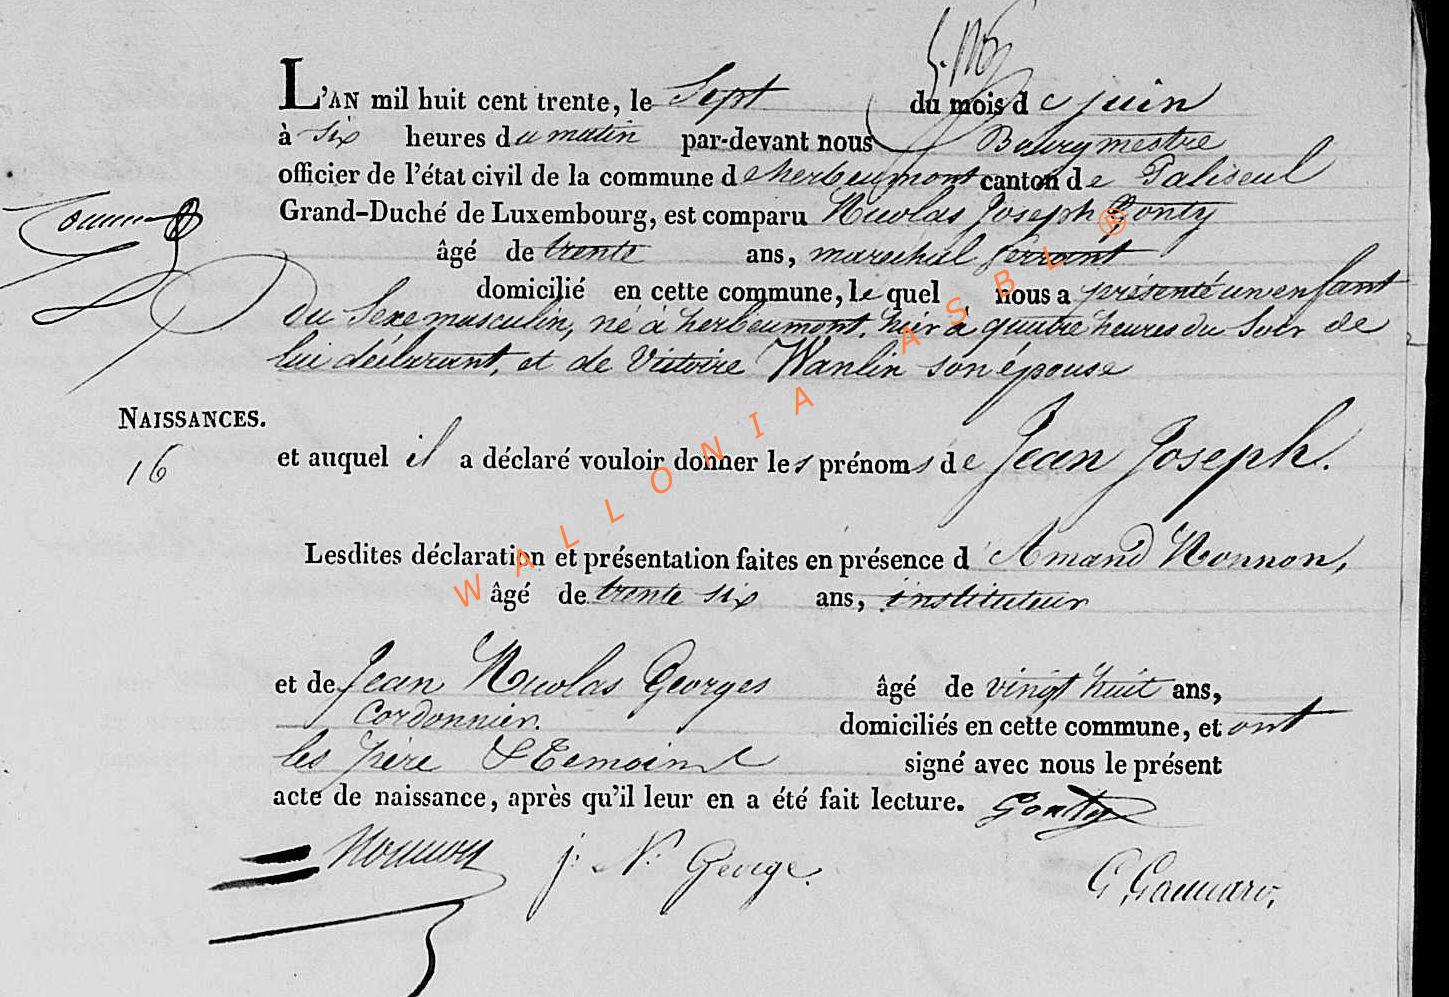 L'AN mil huit cent trente, le Sept du mois de juin
à six heures du matin par-devant nous Bourgmestre
officier de l'état civil de la commune d'herbeumont canton de Paliseul
Grand-Duché de Luxembourg, est comparu Nicolas Joseph Gonty
âgé de trente ans, marechal ferrant
domicilié en cette commune, le quel nous a présenté un enfant
du Sexe masculin, né à herbeumont, hier à quatre heures du Soir de
lui déclarant, et de Victoire Wanlin son épouse
NAISSANCES.
16
et auquel il a déclaré vouloir donner les prénoms de Jean Joseph.
Lesdites déclaration et présentation faites en présence d'Amand Nonnon,
âgé de trente six ans, instituteur
et de Jean Nicolas Georges âgé de vingt huit ans,
Cordonnier. domiciliés en cette commune, et ont
les père & Temoins signé avec nous le présent
acte de naissance, après qu'il leur en a été fait lecture. Gonty
Nonnon j. N. George.
WALLONIA ASBL ®